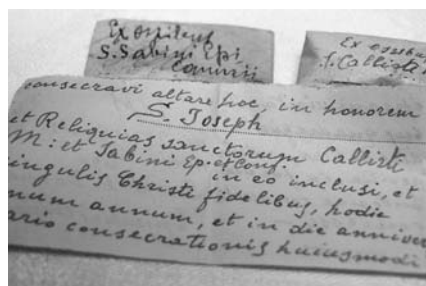 Ex ossibus
S. Sabini Epi
Ex ossibus
S. Callisti
consecravi altare hoc, in honorem
S. Joseph
et Reliquias sanctorum Callisti
M: et Sabini Ep. et Conf.
in eo inclusi, et
singulis Christi fidelibus, hodie
num annum, et in die anniver
ario consecrationis huiusmodi